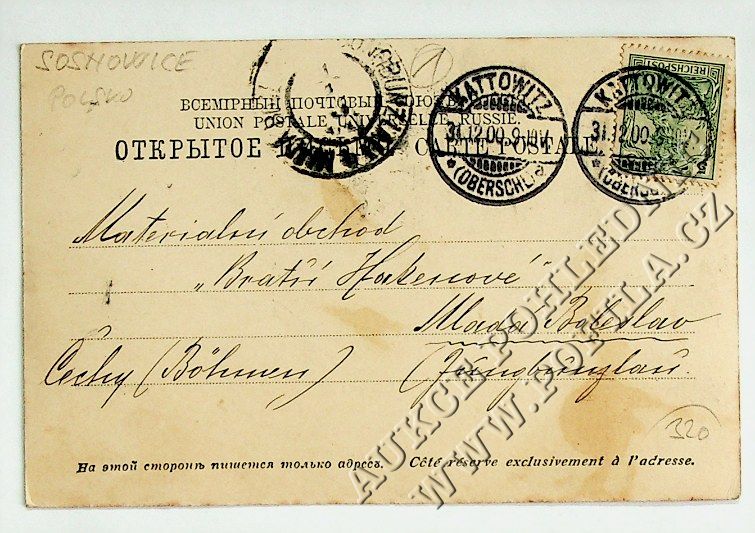 SOSNOVICE
POLSKO
1
REICHSPOST
KATTOWITZ
31.12.00.9-10V.
* (OBERSCHL.) a
KATTOWITZ
31.12.00.9-10V.
* (OBERSCHL.)
ВСЕМІРНЫЙ ПОЧТОВЫЙ СОЮЗЪ.
UNION POSTALE UNIVERSELLE RUSSIE.
ОТКРЫТОЕ CARTE POSTALE.
Materialní obchod
„Bratří Hakenové"
Mladá Boleslav
Čechy (Böhmen) (Jungbunzlau.
320
На этой сторонѣ пишется только адресъ. Côté réservé exclusivement à l'adresse.
AUKCE POHLEDNIC
WWW.POHLA.CZ